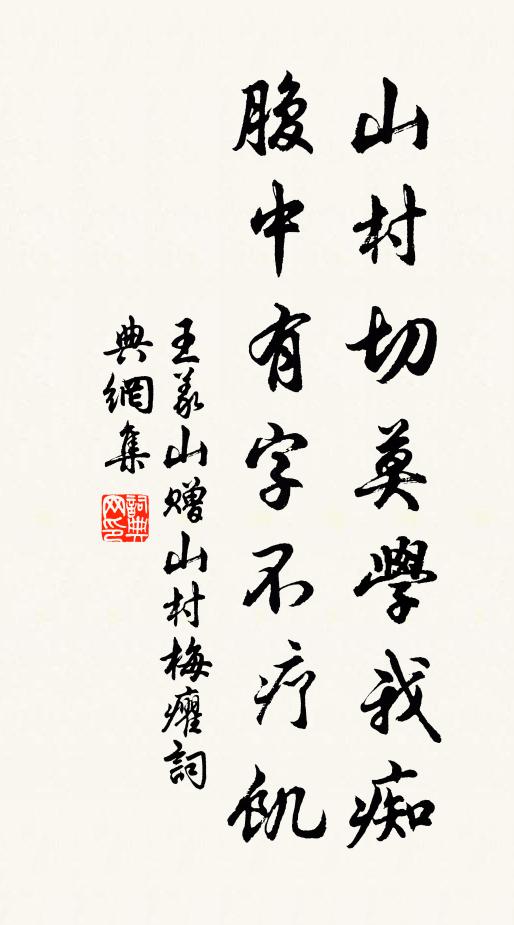 山村切莫學我痴
腹中有字不疗飢
王義山贈山村梅癯詞
典網集
詞典網印